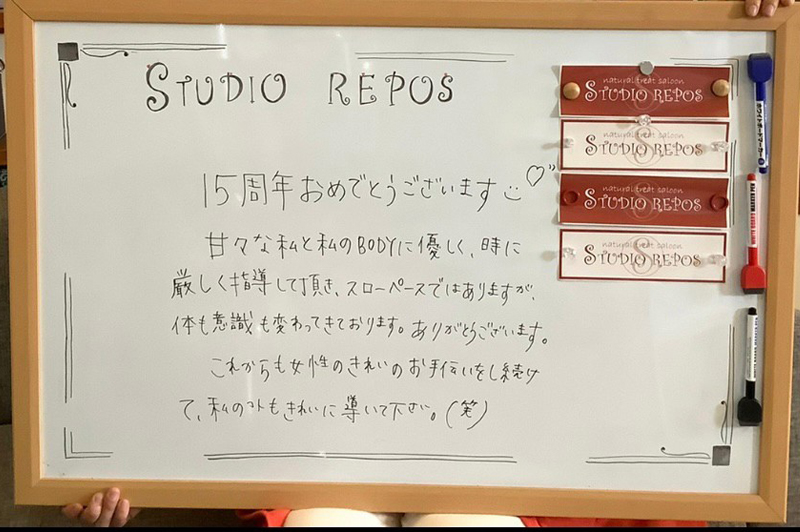 STUDIO REPOS
15周年おめでとうございます
甘々な私と私のBODYに優しく、時に
厳しく指導して頂き、スローペースではありますが、
体も意識も変わってきております。ありがとうございます。
これからも女性のきれいのお手伝いをし続け
て、私のコトもきれいに導いて下さい。(笑)
natural treat saloon
STUDIO REPOS
natural treat saloon
STUDIO REPOS
natural treat saloon
STUDIO REPOS
natural treat saloon
STUDIO REPOS
ホワイトボードマーカー